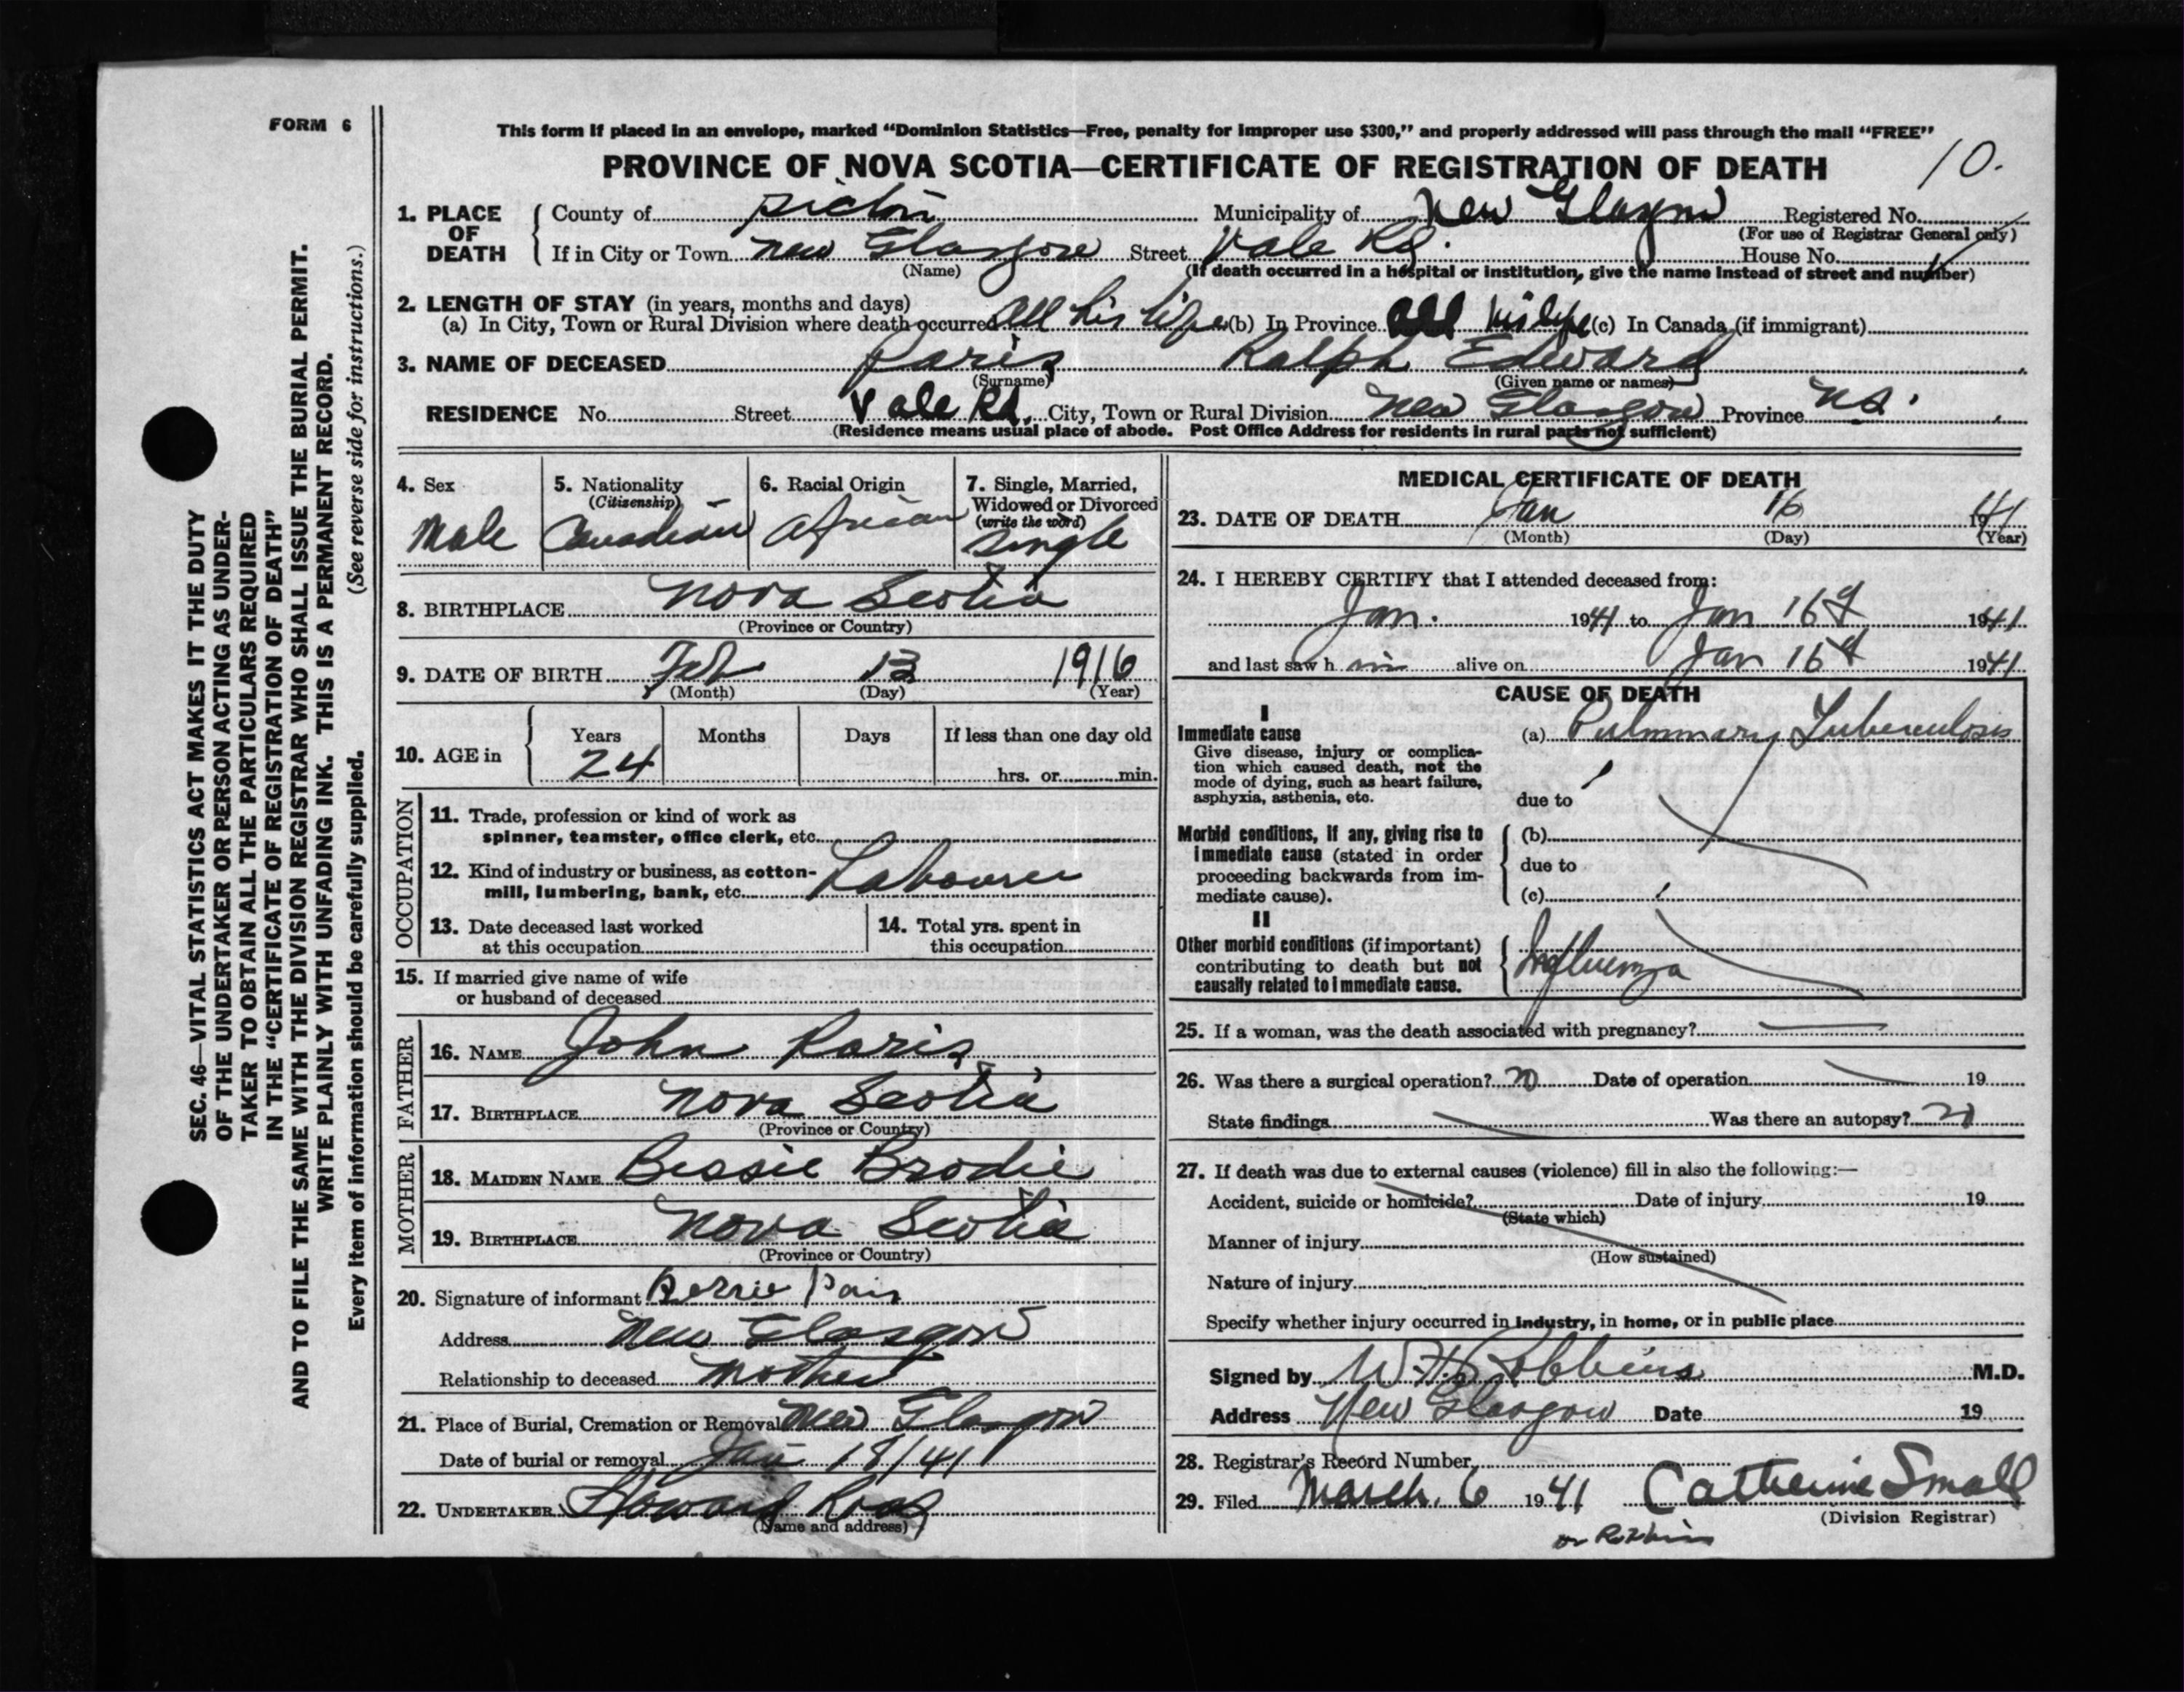 FORM 6
This form if placed in an envelope, marked “Dominion Statistics—Free, penalty for improper use $300,” and properly addressed will pass through the mail “FREE”
PROVINCE OF NOVA SCOTIA—CERTIFICATE OF REGISTRATION OF DEATH
10.
1. PLACE OF DEATH
County of Pictou Municipality of New Glasgow Registered No.
(For use of Registrar General only)
If in City or Town New Glasgow Street Vale Rd. House No.
(Name) (If death occurred in a hospital or institution, give the name instead of street and number)
2. LENGTH OF STAY (in years, months and days)
(a) In City, Town or Rural Division where death occurred all his life (b) In Province all his life (c) In Canada (if immigrant)
3. NAME OF DECEASED Paris Ralph Edward
(Surname) (Given name or names)
RESIDENCE No. Street Vale Rd. City, Town or Rural Division New Glasgow Province N.S.
(Residence means usual place of abode. Post Office Address for residents in rural parts not sufficient)
4. Sex
Male
5. Nationality
(Citizenship)
Canadian
6. Racial Origin
African
7. Single, Married,
Widowed or Divorced
(write the word)
Single
8. BIRTHPLACE Nova Scotia
(Province or Country)
9. DATE OF BIRTH Feb 13 1916
(Month) (Day) (Year)
10. AGE in
Years Months Days If less than one day old
24 hrs. or min.
OCCUPATION
11. Trade, profession or kind of work as
spinner, teamster, office clerk, etc.
12. Kind of industry or business, as cotton-
mill, lumbering, bank, etc. Labourer
13. Date deceased last worked
at this occupation
14. Total yrs. spent in
this occupation
15. If married give name of wife
or husband of deceased
FATHER
16. NAME John Paris
17. BIRTHPLACE Nova Scotia
(Province or Country)
MOTHER
18. MAIDEN NAME Bessie Brodie
19. BIRTHPLACE Nova Scotia
(Province or Country)
20. Signature of informant Bessie Paris
Address New Glasgow
Relationship to deceased Mother
21. Place of Burial, Cremation or Removal New Glasgow
Date of burial or removal Jan 18/41
22. UNDERTAKER Howard
(Name and address)
MEDICAL CERTIFICATE OF DEATH
23. DATE OF DEATH Jan 16 1941
(Month) (Day) (Year)
24. I HEREBY CERTIFY that I attended deceased from:
Jan. 1941 to Jan 16th 1941
and last saw h im alive on Jan 16th 1941
CAUSE OF DEATH
I
Immediate cause
Give disease, injury or complica-
tion which caused death, not the
mode of dying, such as heart failure,
asphyxia, asthenia, etc.
(a) Pulmonary Tuberculosis
due to
Morbid conditions, if any, giving rise to
immediate cause (stated in order
proceeding backwards from im-
mediate cause).
(b)
due to
(c)
II
Other morbid conditions (if important)
contributing to death but not
causally related to immediate cause.
Influenza
25. If a woman, was the death associated with pregnancy?
26. Was there a surgical operation? no Date of operation 19
State findings Was there an autopsy? no
27. If death was due to external causes (violence) fill in also the following:—
Accident, suicide or homicide? Date of injury 19
(State which)
Manner of injury
(How sustained)
Nature of injury
Specify whether injury occurred in industry, in home, or in public place
Signed by W.H. Robbins M.D.
Address New Glasgow Date 19
28. Registrar's Record Number
29. Filed March. 6 1941 Catherine Small
(Division Registrar)
Dr Robbins
SEC. 46—VITAL STATISTICS ACT MAKES IT THE DUTY
OF THE UNDERTAKER OR PERSON ACTING AS UNDER-
TAKER TO OBTAIN ALL THE PARTICULARS REQUIRED
IN THE “CERTIFICATE OF REGISTRATION OF DEATH”
AND TO FILE THE SAME WITH THE DIVISION REGISTRAR WHO SHALL ISSUE THE BURIAL PERMIT.
WRITE PLAINLY WITH UNFADING INK. THIS IS A PERMANENT RECORD.
Every item of information should be carefully supplied. (See reverse side for instructions.)